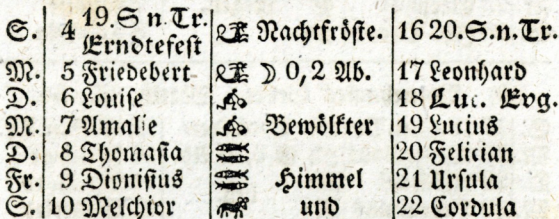 S. 4 19. S n. Tr. Erndtefest Nachtfröste. 16 20. S. n. Tr.
M. 5 Friedebert ☽ 0, 2 Ab. 17 Leonhard
D. 6 Louise 18 Luc. Evg.
M. 7 Amalie Bewölkter 19 Lucius
D. 8 Thomasia 20 Felician
Fr. 9 Dionisius Himmel 21 Ursula
S. 10 Melchior und 22 Cordula